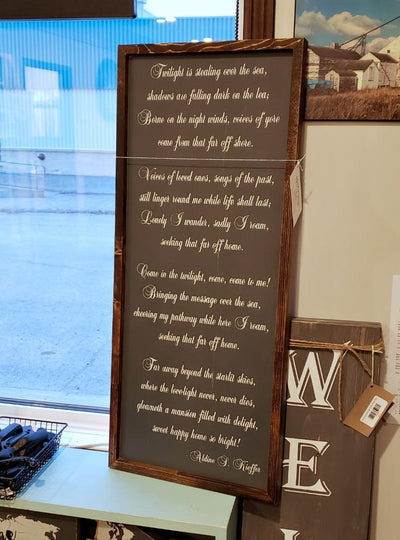 Twilight is stealing over the sea,
shadows are falling dark on the lea;
Borne on the night winds, voices of yore
come from that far off shore.
Voices of loved ones, songs of the past,
still linger round me while life shall last;
Lonely I wander, sadly I roam,
seeking that far off home.
Come in the twilight, come, come to me!
Bringing the message over the sea,
cheering my pathway while here I roam,
seeking that far off home.
Far away beyond the starlit skies,
where the lovelight never, never dies,
gleameth a mansion filled with delight,
sweet happy home so bright!
Aldine S. Kieffer
W
E